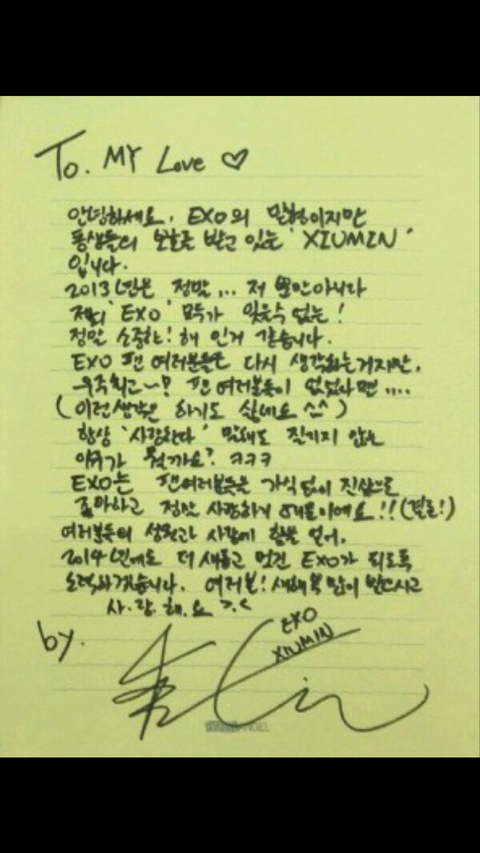 To. MY Love ♡
안녕하세요. EXO의 맏형이지만
동생들의 보호를 받고 있는 'XIUMIN'
입니다.
2013년은 정말... 저 뿐만아니라
저희 'EXO' 모두가 잊을수 없는!
정말 소중한! 해 인거 같습니다.
EXO 팬 여러분들은 다시 생각하는거지만,
우주최고~? 팬 여러분들이 없었다면....
(이런생각은 하기도 싫네요 ^^)
항상 '사랑한다' 말해도 질리지 않는
이유가 뭘까요? ㅋㅋㅋ
EXO는 팬여러분들을 가식없이 진심으로
좋아하고 정말 사랑하기 때문이에요!! (결론!)
여러분들의 성원과 사랑에 힘을 얻어,
2014년에도 더 새롭고 멋진 EXO가 되도록
노력하겠습니다. 여러분! 새해복 많이 받으시고
사.랑.해.요 >.<
by.
EXO
XIUMIN